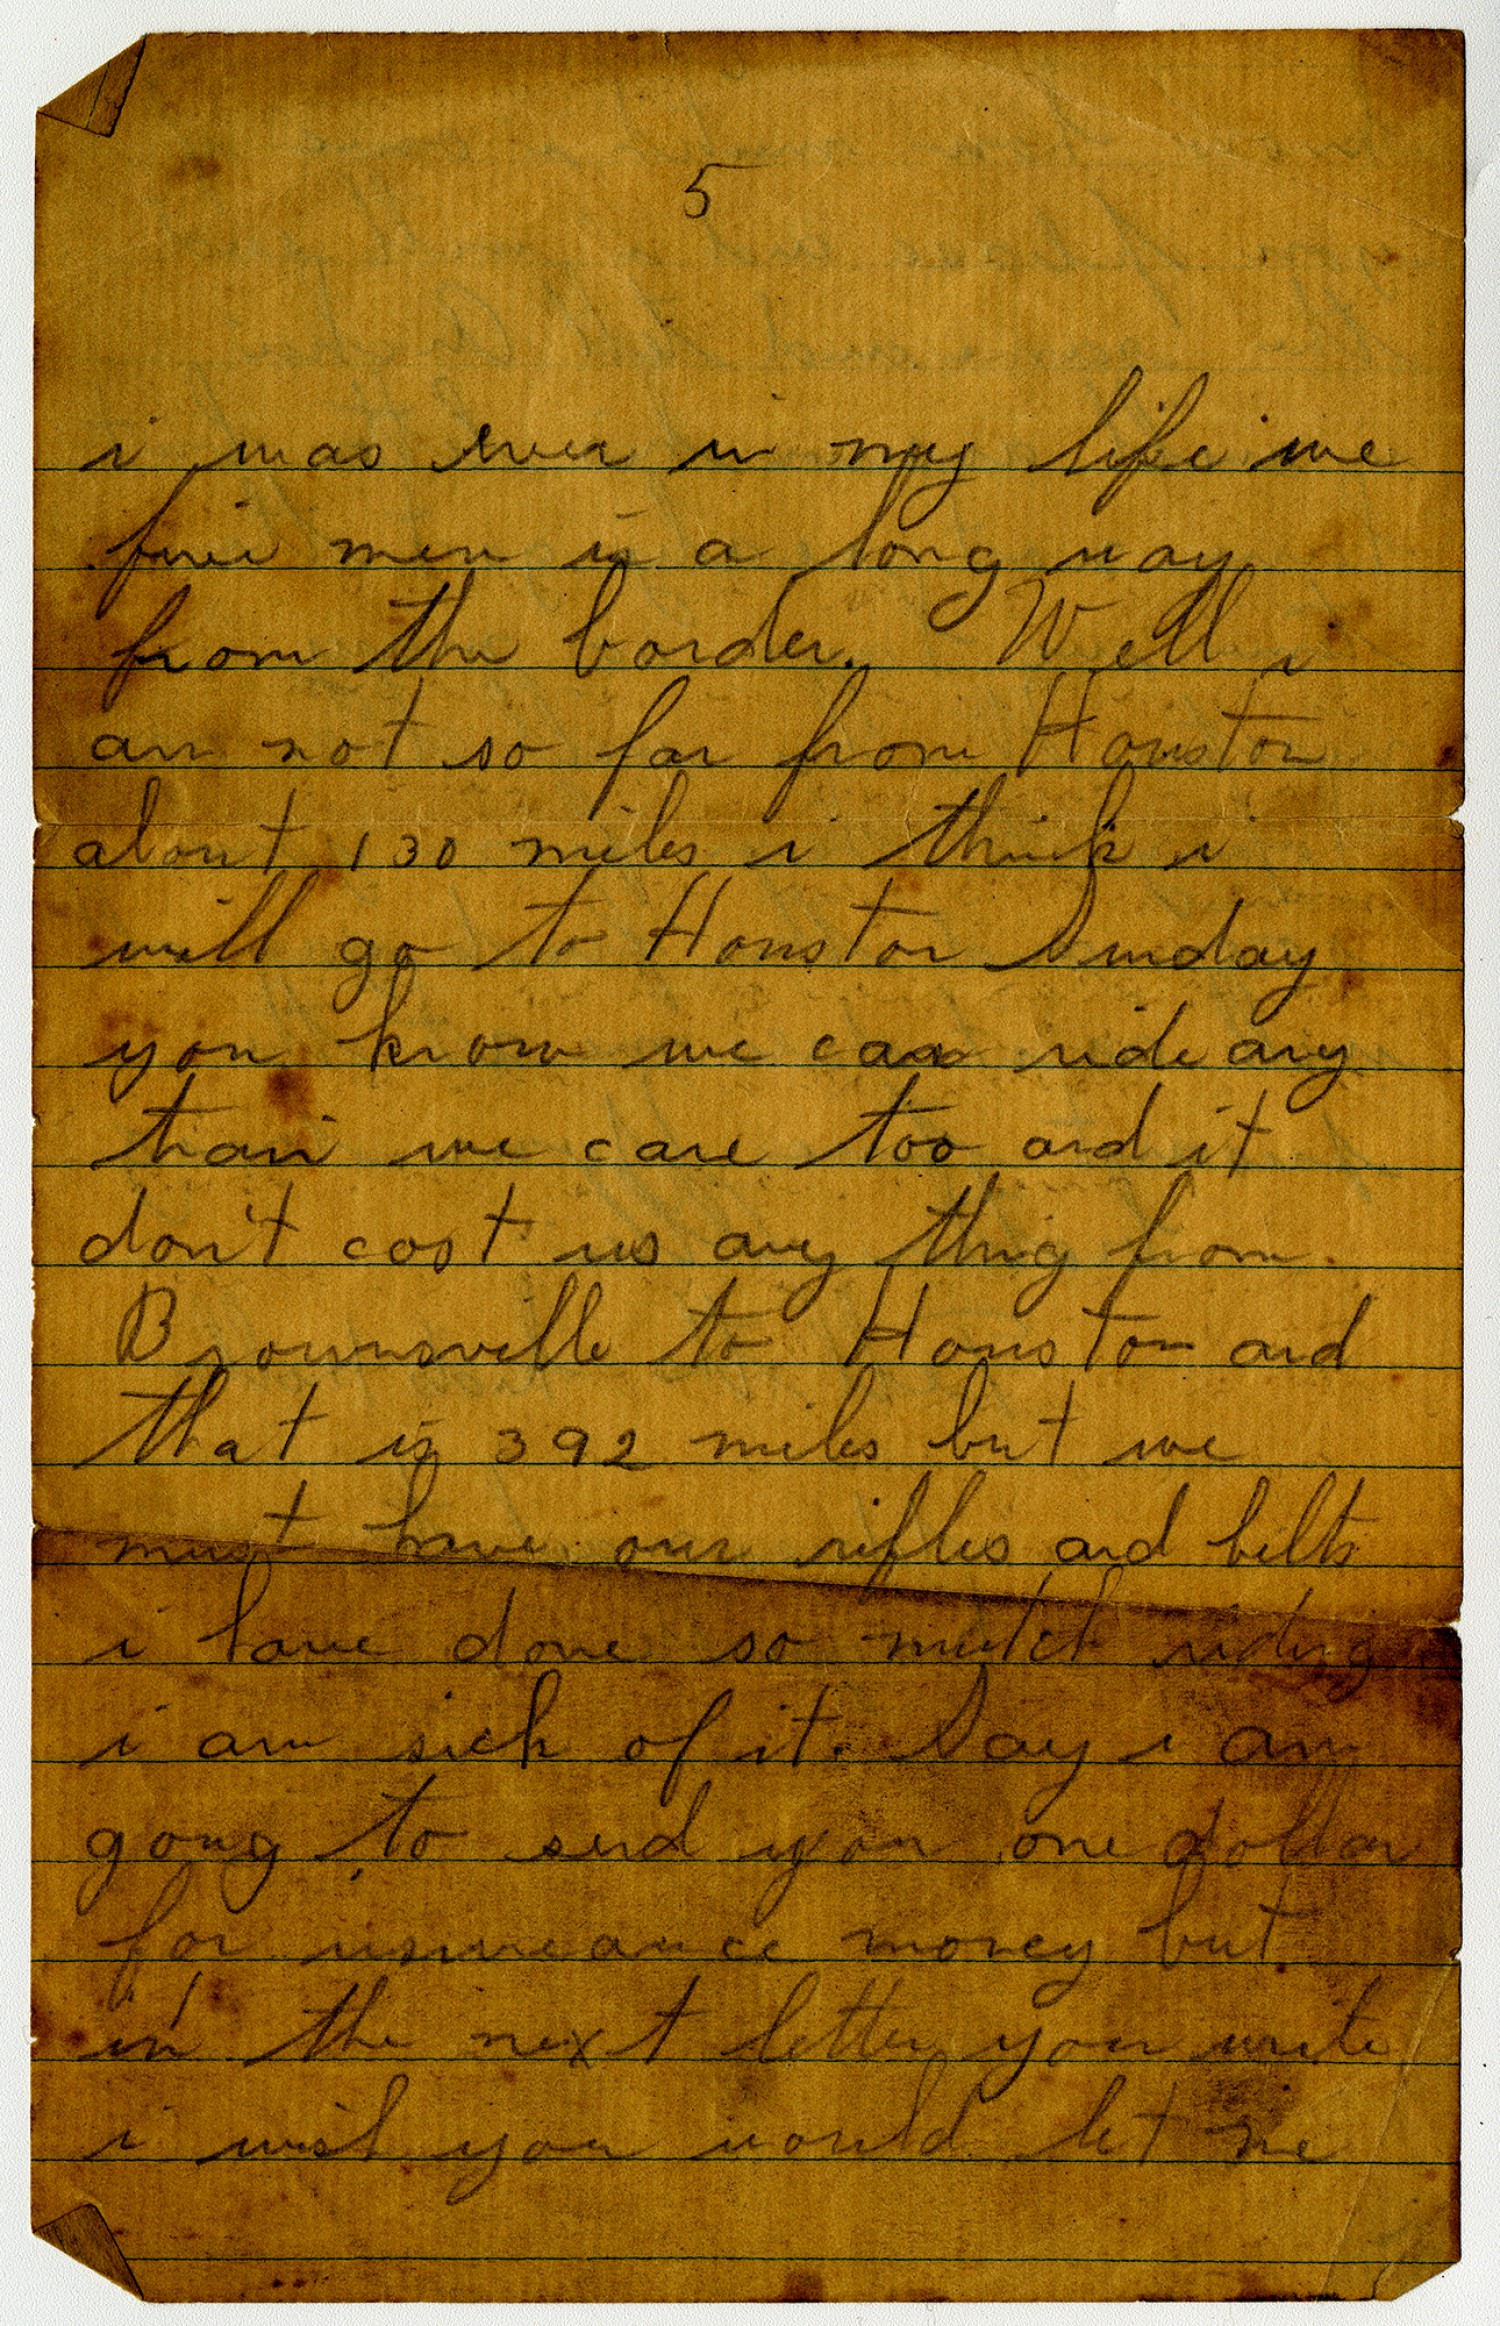 5
i was ever in my life we
five men is a long way
from the border. Well i
am not so far from Houston
about 130 miles i think i
will go to Houston Sunday
you know we can ride any
train we care too and it
don't cost us any thing from
Brownsville to Houston and
that is 392 miles but we
must have our rifles and belts
i have done so mutch riding
i am sick of it. Say i am
going to send you one dollar
for insureance money but
in the next letter you write
i wish you would let me